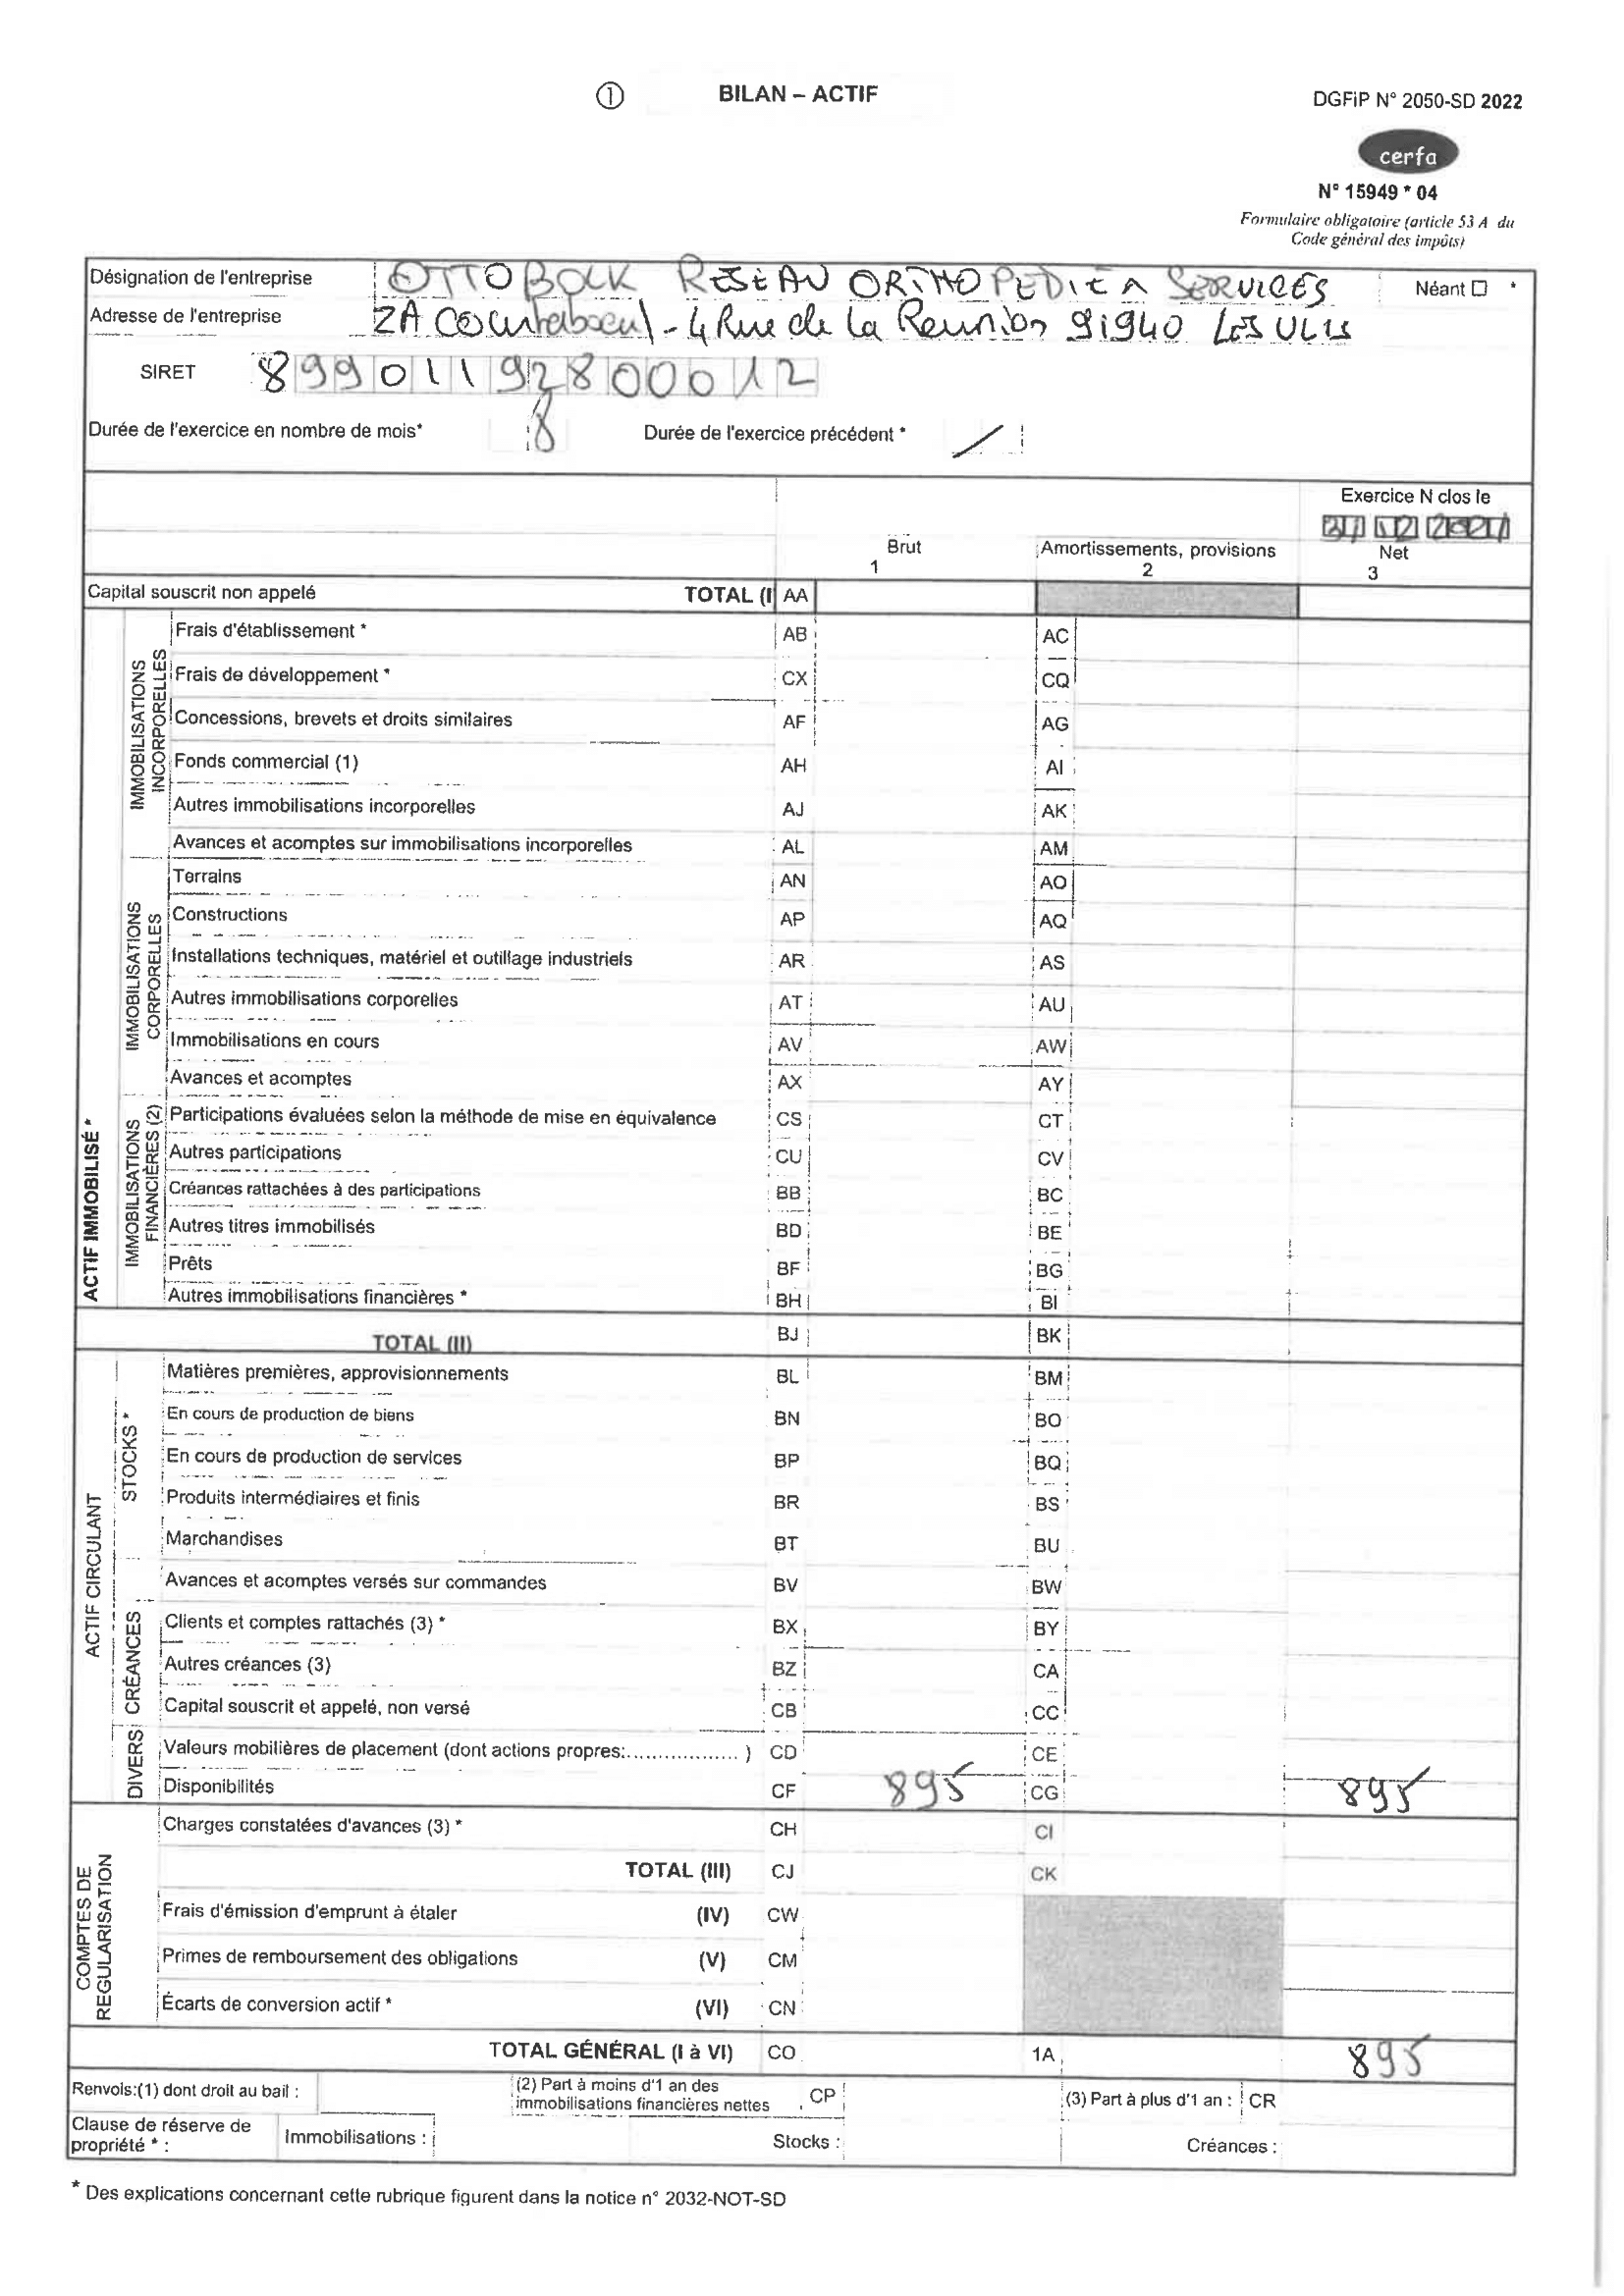 ① BILAN – ACTIF
DGFiP N° 2050-SD 2022
cerfa
N° 15949 * 04
Formulaire obligatoire (article 53 A du
Code général des impôts)
Désignation de l'entreprise OTTO BOCK RESEAU ORTHOPEDIE SERVICES Néant ☐ *
Adresse de l'entreprise ZA Courtaboeuf - 4 Rue de la Reunion 91940 LES ULIS
SIRET 89901192800012
Durée de l'exercice en nombre de mois* 8 Durée de l'exercice précédent * /
Exercice N clos le
31 12 2021
Brut Amortissements, provisions Net
1 2 3
Capital souscrit non appelé TOTAL (I AA
ACTIF IMMOBILISÉ *
IMMOBILISATIONS INCORPORELLES
Frais d'établissement * AB AC
Frais de développement * CX CQ
Concessions, brevets et droits similaires AF AG
Fonds commercial (1) AH AI
Autres immobilisations incorporelles AJ AK
Avances et acomptes sur immobilisations incorporelles AL AM
IMMOBILISATIONS CORPORELLES
Terrains AN AO
Constructions AP AQ
Installations techniques, matériel et outillage industriels AR AS
Autres immobilisations corporelles AT AU
Immobilisations en cours AV AW
Avances et acomptes AX AY
IMMOBILISATIONS FINANCIÈRES (2)
Participations évaluées selon la méthode de mise en équivalence CS CT
Autres participations CU CV
Créances rattachées à des participations BB BC
Autres titres immobilisés BD BE
Prêts BF BG
Autres immobilisations financières * BH BI
TOTAL (II) BJ BK
ACTIF CIRCULANT
STOCKS *
Matières premières, approvisionnements BL BM
En cours de production de biens BN BO
En cours de production de services BP BQ
Produits intermédiaires et finis BR BS
Marchandises BT BU
Avances et acomptes versés sur commandes BV BW
CRÉANCES
Clients et comptes rattachés (3) * BX BY
Autres créances (3) BZ CA
Capital souscrit et appelé, non versé CB CC
DIVERS
Valeurs mobilières de placement (dont actions propres:.................. ) CD CE
Disponibilités CF 895 CG 895
COMPTES DE REGULARISATION
Charges constatées d'avances (3) * CH CI
TOTAL (III) CJ CK
Frais d'émission d'emprunt à étaler (IV) CW
Primes de remboursement des obligations (V) CM
Écarts de conversion actif * (VI) CN
TOTAL GÉNÉRAL (I à VI) CO 1A 895
Renvois:(1) dont droit au bail : (2) Part à moins d'1 an des immobilisations financières nettes CP (3) Part à plus d'1 an : CR
Clause de réserve de propriété * : Immobilisations : Stocks : Créances :
* Des explications concernant cette rubrique figurent dans la notice n° 2032-NOT-SD